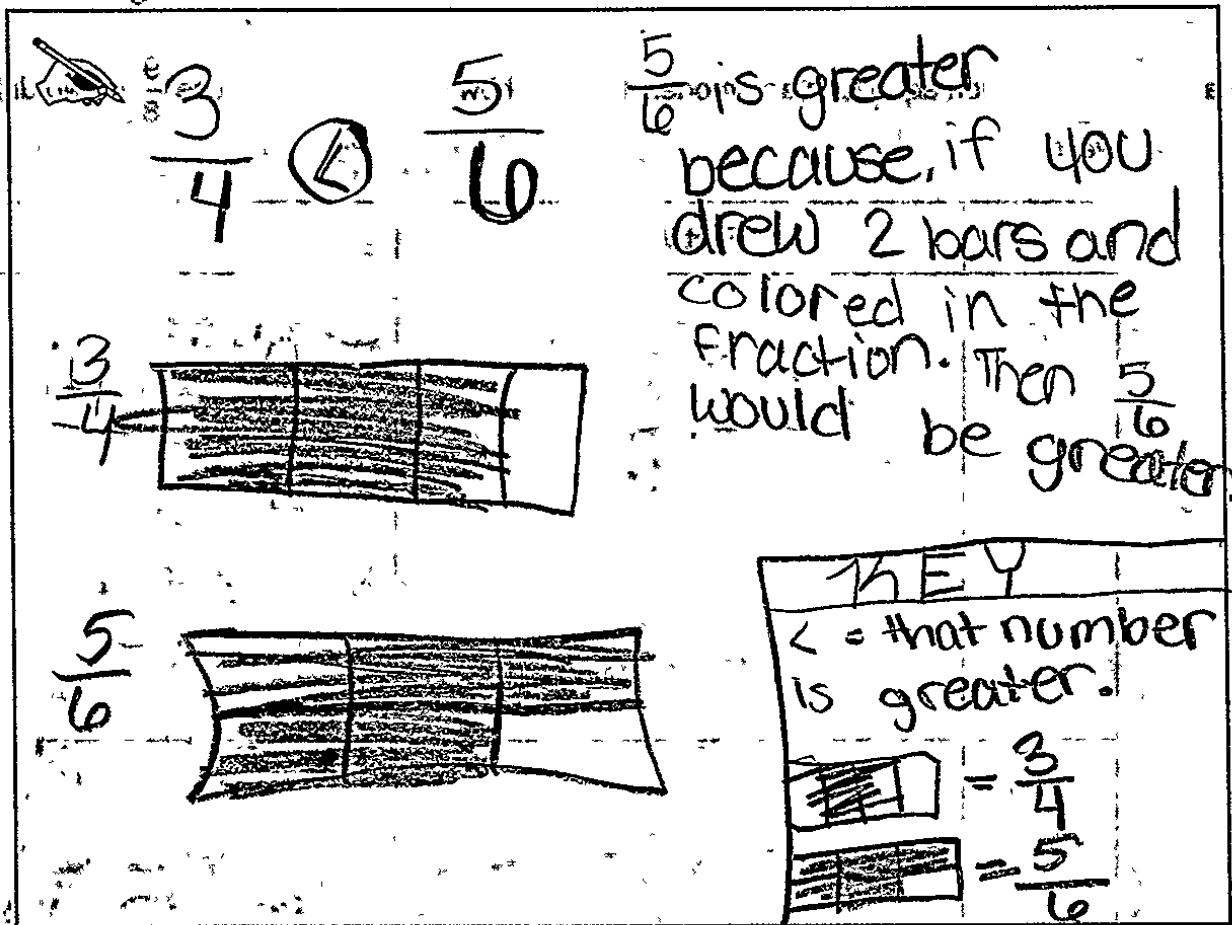 3/4 < 5/6
5/6 is greater
because, if you
drew 2 bars and
colored in the
fraction. Then 5/6
would be greater
3/4
5/6
KEY
< = that number
is greater.
= 3/4
= 5/6